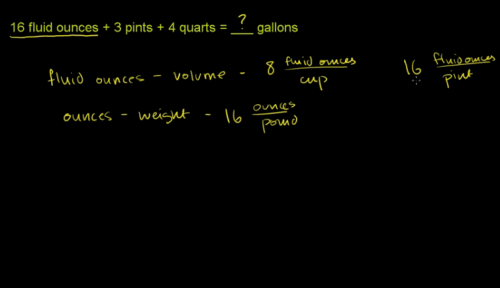 16 fluid ounces + 3 pints + 4 quarts = ? gallons
fluid ounces - volume - 8 fluid ounces / cup 16 fluid ounces / pint
ounces - weight - 16 ounces / pound